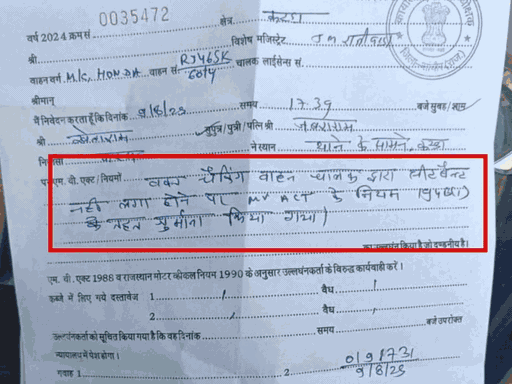 0035472
वर्ष 2024 क्रम सं. क्षेत्र. केरडा
श्री विशेष मजिस्ट्रेट. J M
वाहन वर्ग. M/C, HONDA वाहन सं. RJ46SK चालक लाईसेंस सं.
श्रीमान्
मैं निवेदन करता हूँ कि दिनांक 9/8/25 समय 17.39 बजे सुबह / शाम
श्री सुपुत्र / पुत्री / पत्नि श्री
ने स्थान थाने के सामने,
एम. वी. एक्ट / नियमों वक्त चैकिंग वाहन चालक द्वारा सीटबैल्ट
नही लगा होने पर MV ACT के नियम 194B(1)
के तहत जुर्माना किया गया।
का उल्लंघन किया है जो दण्डनीय है।
एम. वी. एक्ट 1988 व राजस्थान मोटर कीकल नियम 1990 के अनुसार उल्लंघनकर्ता के विरुद्ध कार्यवाही करें।
कब्जे में लिए गये दस्तावेज 1 वैध 1
2 वैध
उल्लंघनकर्ता को सूचित किया गया है कि वह दिनांक समय बजे उपरोक्त
न्यायालय में पेश होगा।
गवाह 1 2
9/8/25